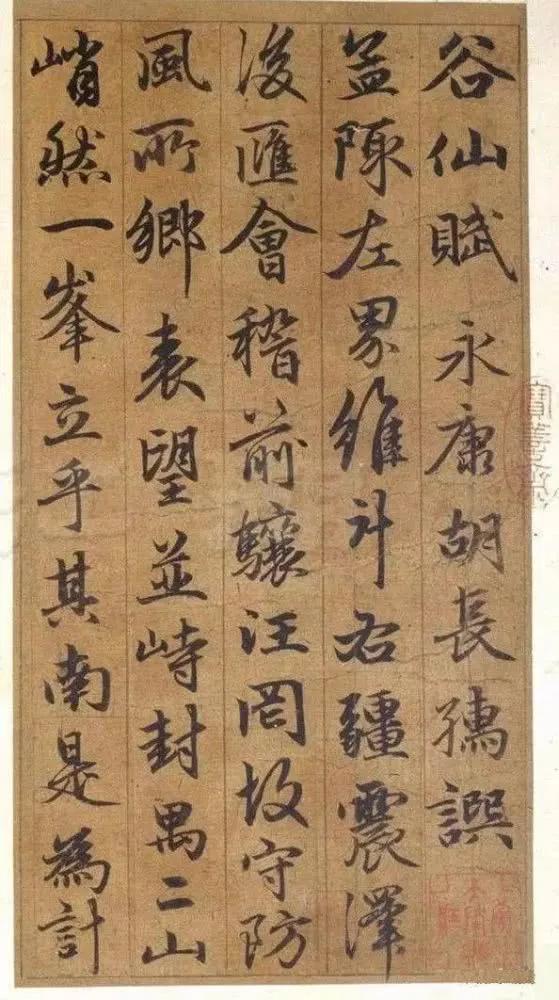 谷仙賦 永康胡長孺譔
盖陬左界維斗右疆震澤
後匯會稽前驤汪罔故守防
風所鄉表望並峙封禺二山
峭然一峯立乎其南是為計